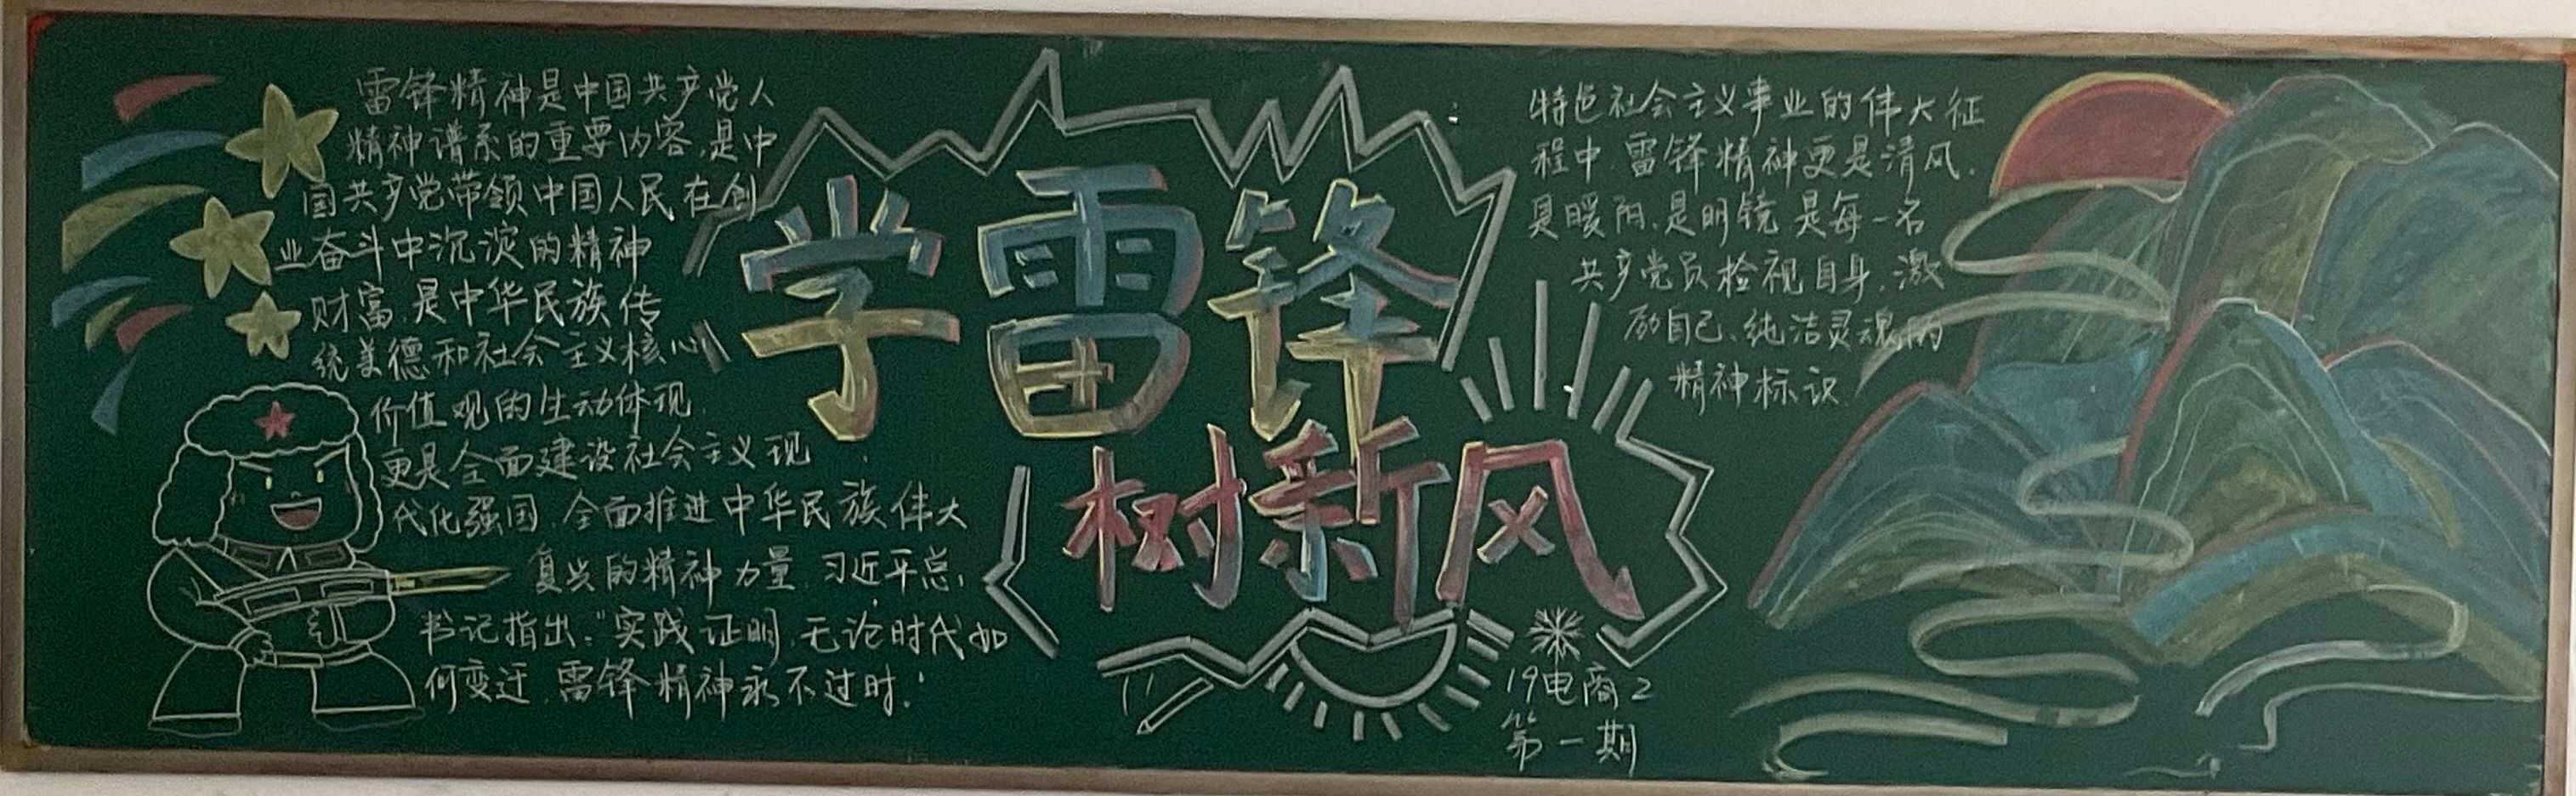 雷锋精神是中国共产党人
精神谱系的重要内容,是中
国共产党带领中国人民在创
业奋斗中沉淀的精神
财富,是中华民族传
统美德和社会主义核心
价值观的生动体现,
更是全面建设社会主义现
代化强国,全面推进中华民族伟大
复兴的精神力量,习近平总
书记指出:“实践证明,无论时代如
何变迁,雷锋精神永不过时.”
学雷锋
树新风
19电商2
第一期
特色社会主义事业的伟大征
程中,雷锋精神更是清风,
是暖阳,是明镜,是每一名
共产党员检视自身,激
励自己、纯洁灵魂的
精神标识.